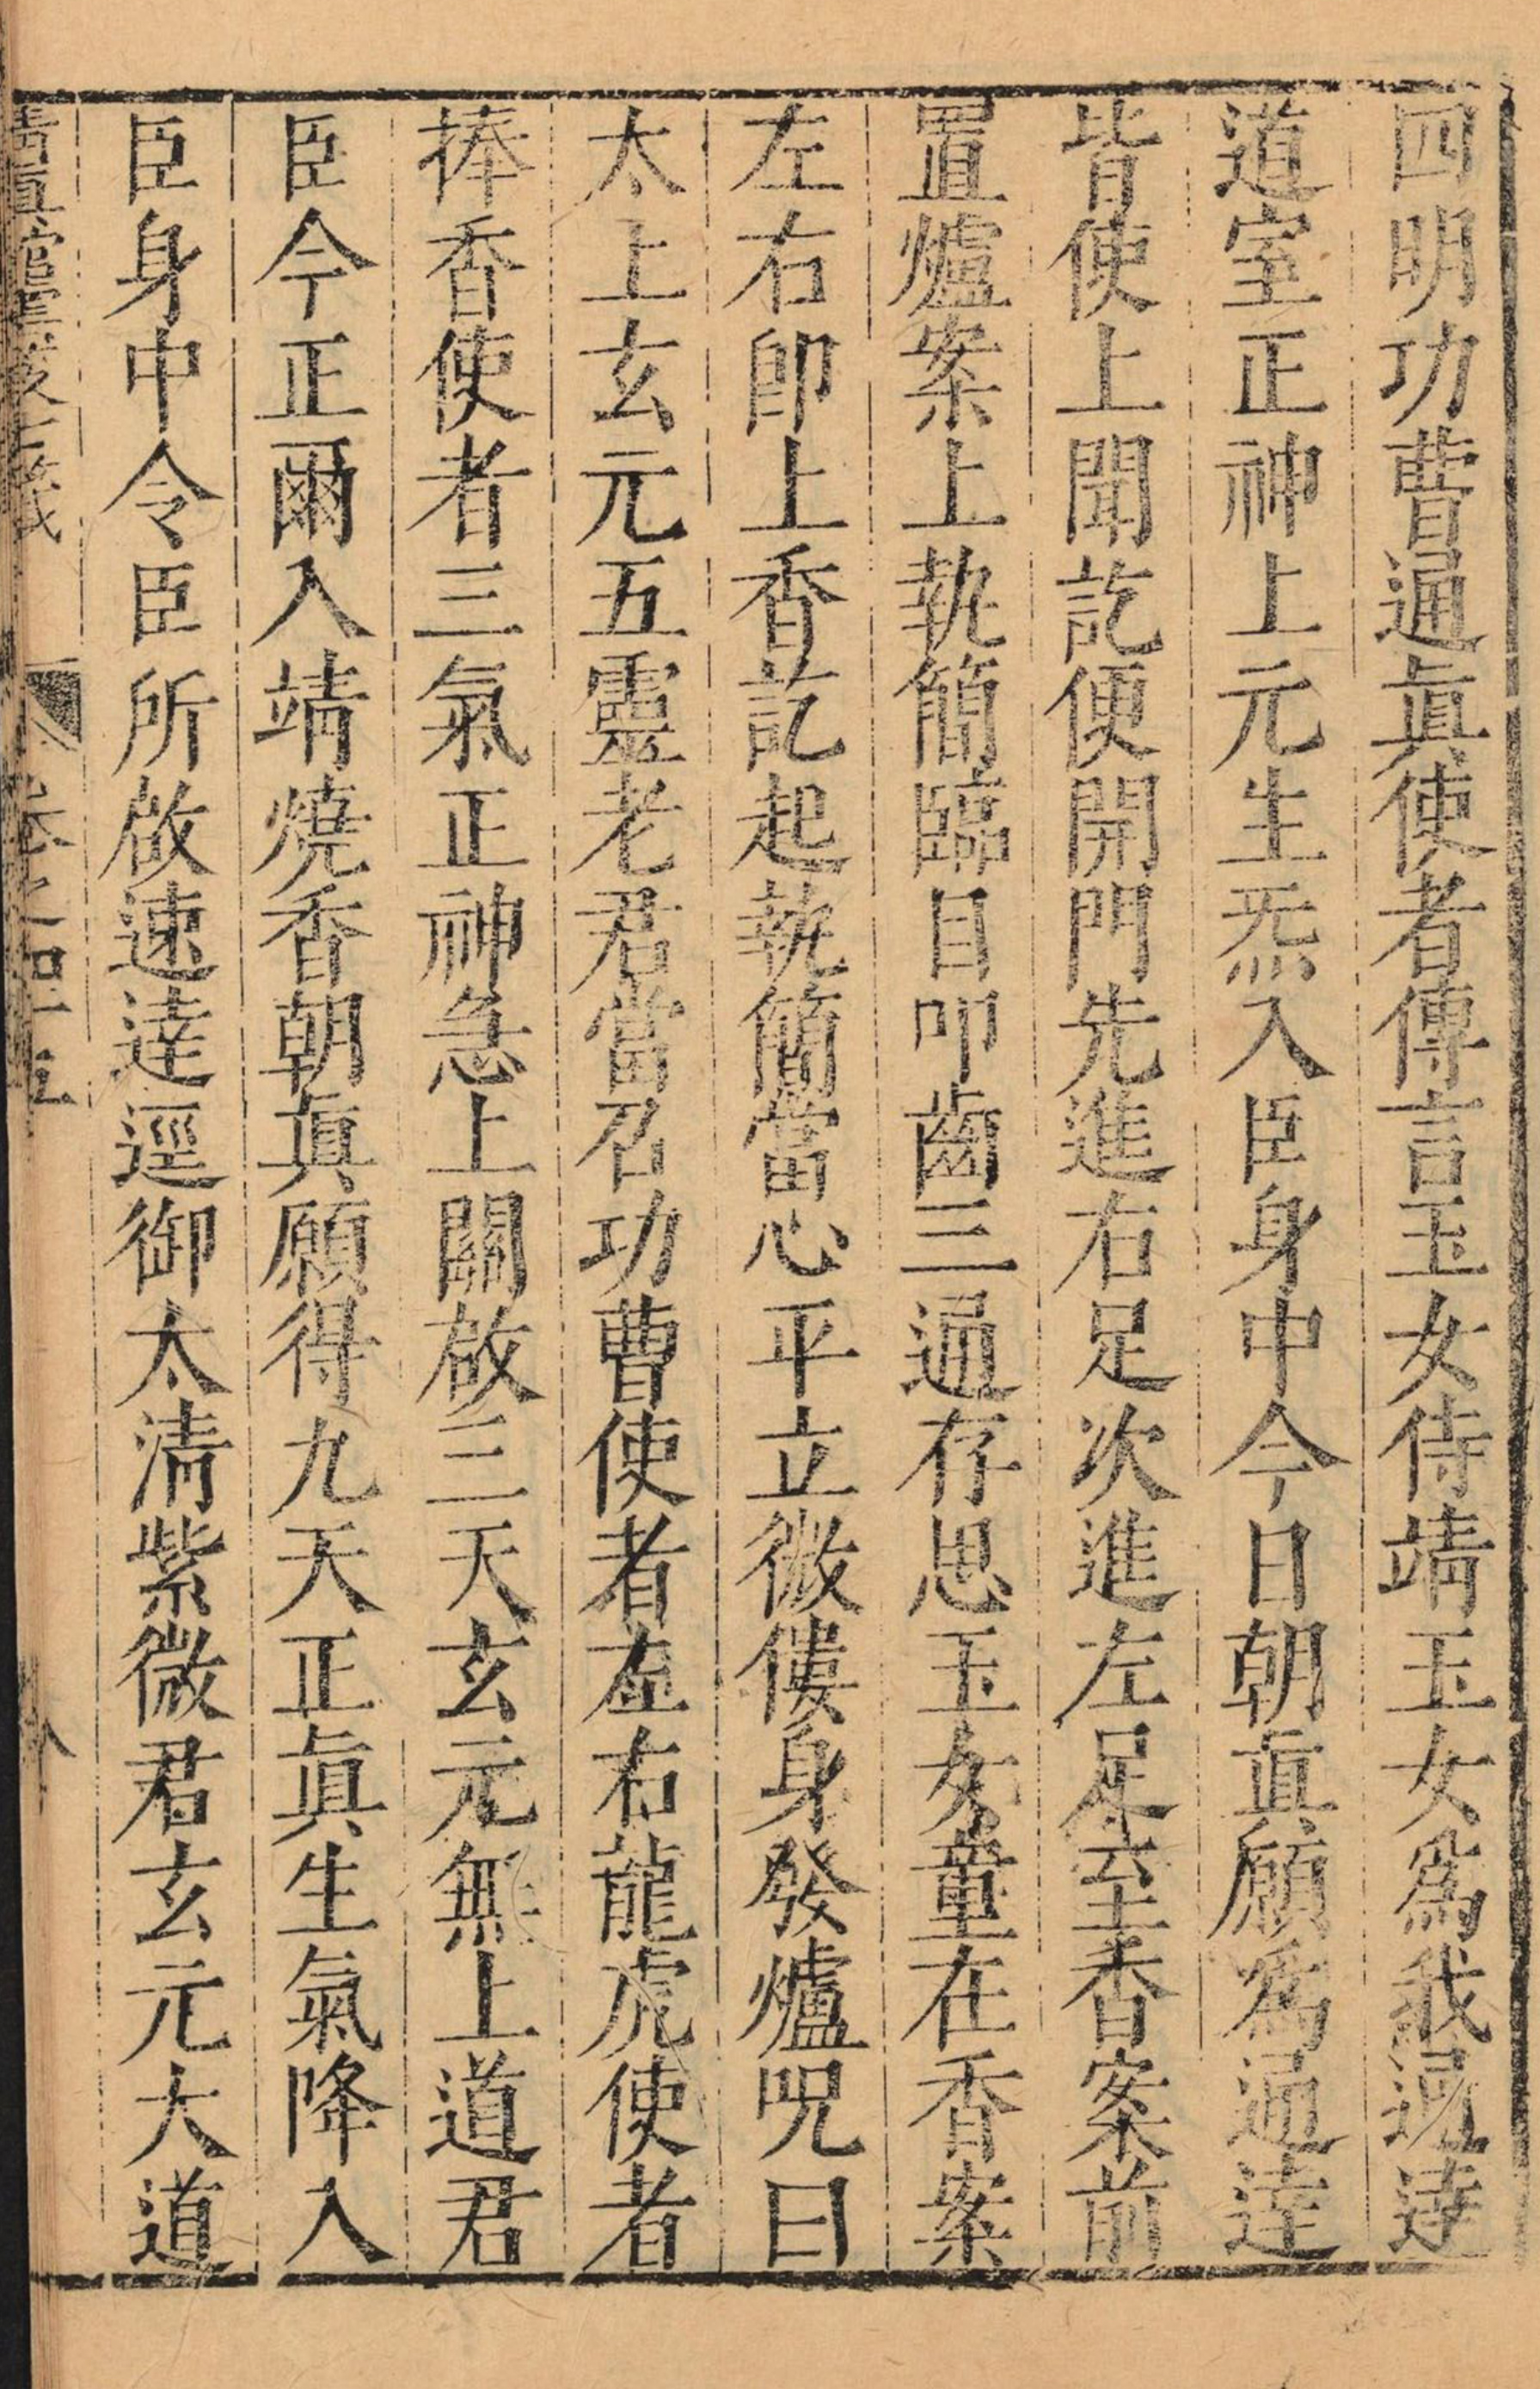 四明功曹通眞使者傳言玉女侍靖玉女爲我通達
道室正神上元生炁入臣身中今日朝眞願爲通達
皆使上聞訖便開門先進右足次進左足至香案前
置爐案上執簡臨目叩齒三通存思玉女童在香案
左右卽上香訖起執簡當心平立微僂身發爐咒曰
太上玄元五靈老君當召功曹使者左右龍虎使者
捧香使者三氣正神急上關啟三天玄元無上道君
臣今正爾入靖燒香朝眞願得九天正眞生氣降入
臣身中令臣所啟速達逕御太清紫微君玄元大道